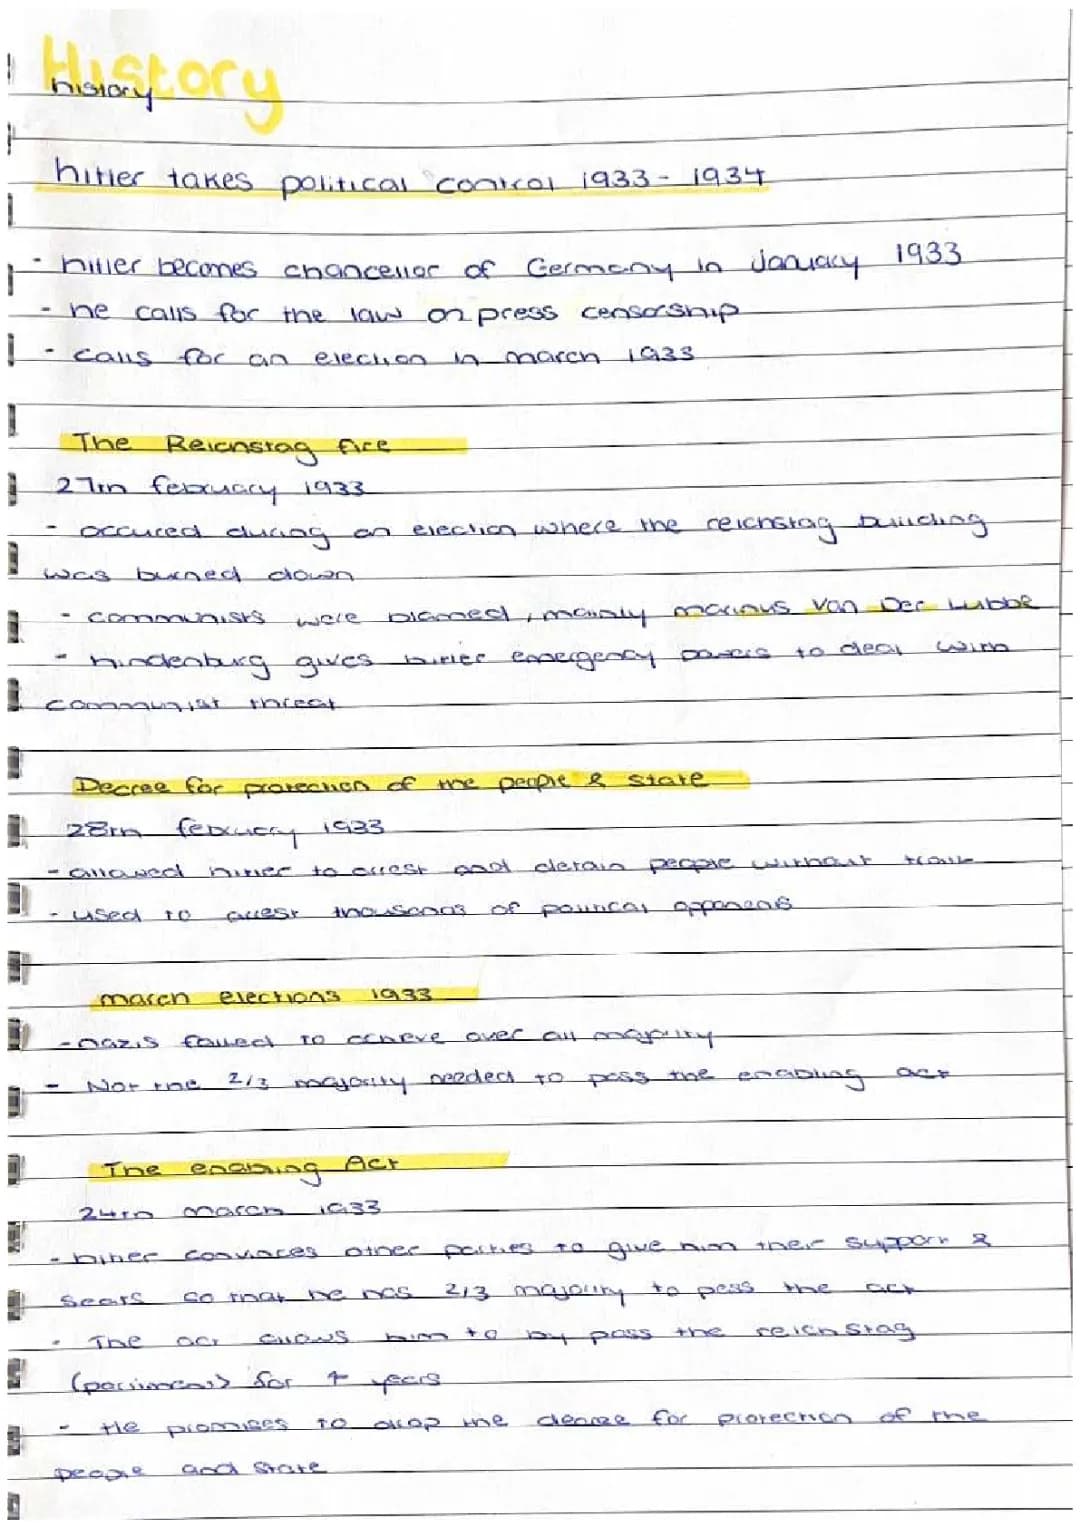 History
history
hitler takes political control 1933 - 1934
- hitler becomes chancellor of Germany in January 1933
- he calls for the law on press censorship
- calls for an election in march 1933
The Reichstag fire
27th february 1933
- occured during an election where the reichstag building
was burned down
- communists were blamed, mainly marinus van Der Lubbe
- hindenburg gives hitler emergency powers to deal with
communist threat
Decree for protection of the people & state
28th february 1933
- allowed hitler to arrest and detain people without trail
- used to arrest thousands of political opponents
march elections 1933
- nazis failed to achieve over all majority
- Not the 2/3 majority needed to pass the enabling act
The enabling Act
24th march 1933
- hitler convinces other parties to give him their support &
seats so that he has 2/3 majority to pass the act
- The act allows him to by pass the reichstag
(parliment) for 4 years
- He promises to drop the decree for protection of the
people and state